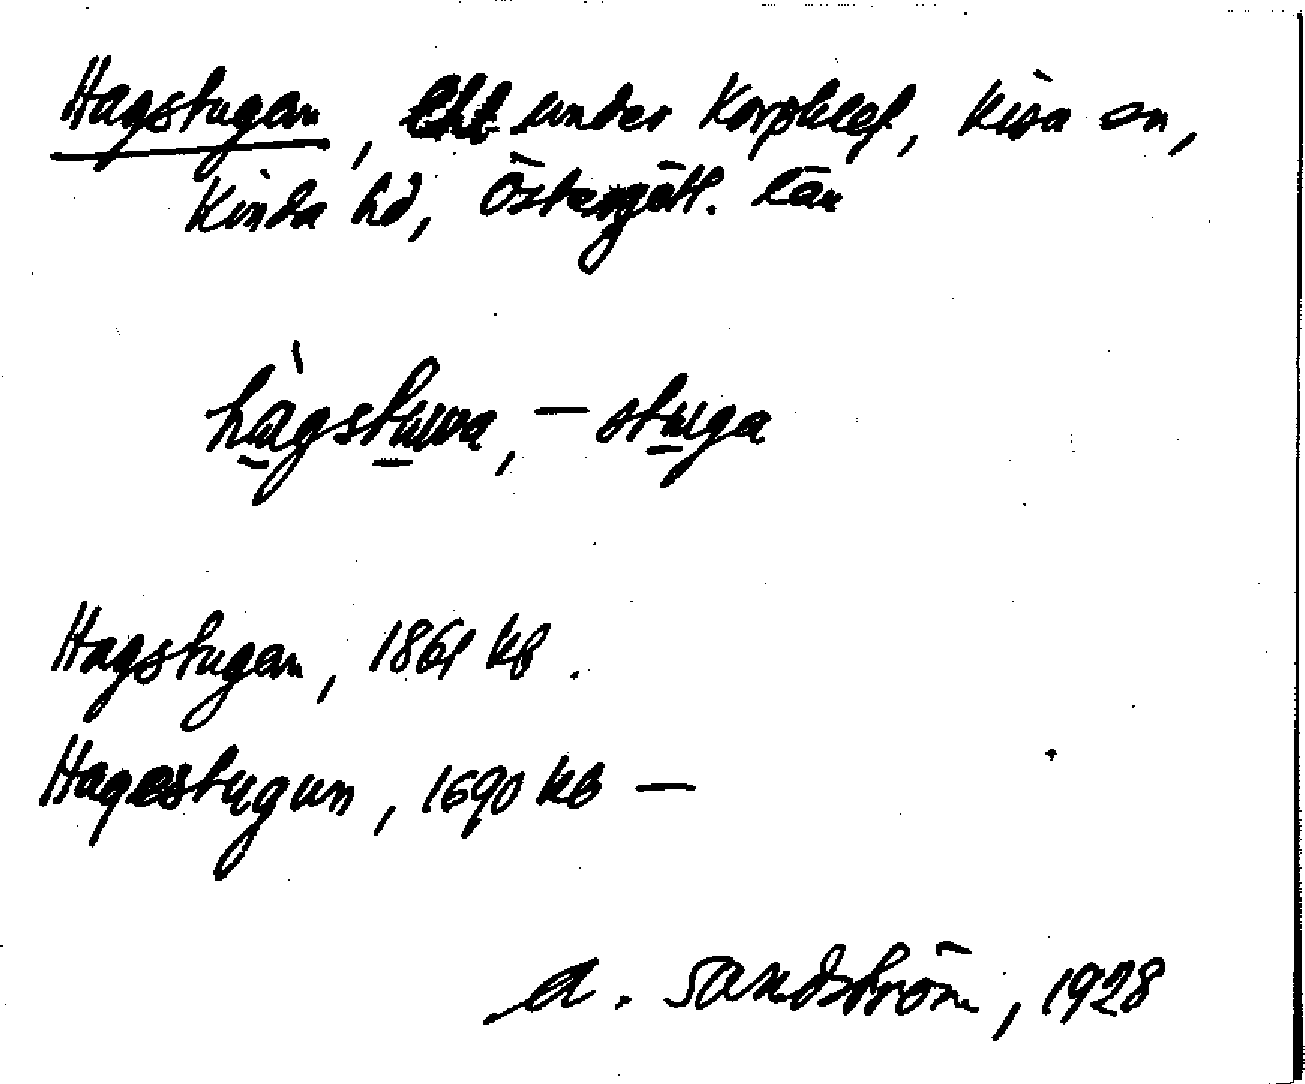 Hagstugan, lht under Korpklef, Kisa sn,
Kinda hd, Östergötl. län
hàgstuwa, — stuga
Hagstugan, 1861 kb.
Hagestugun, 1690 kb —
A. Sandström, 1928